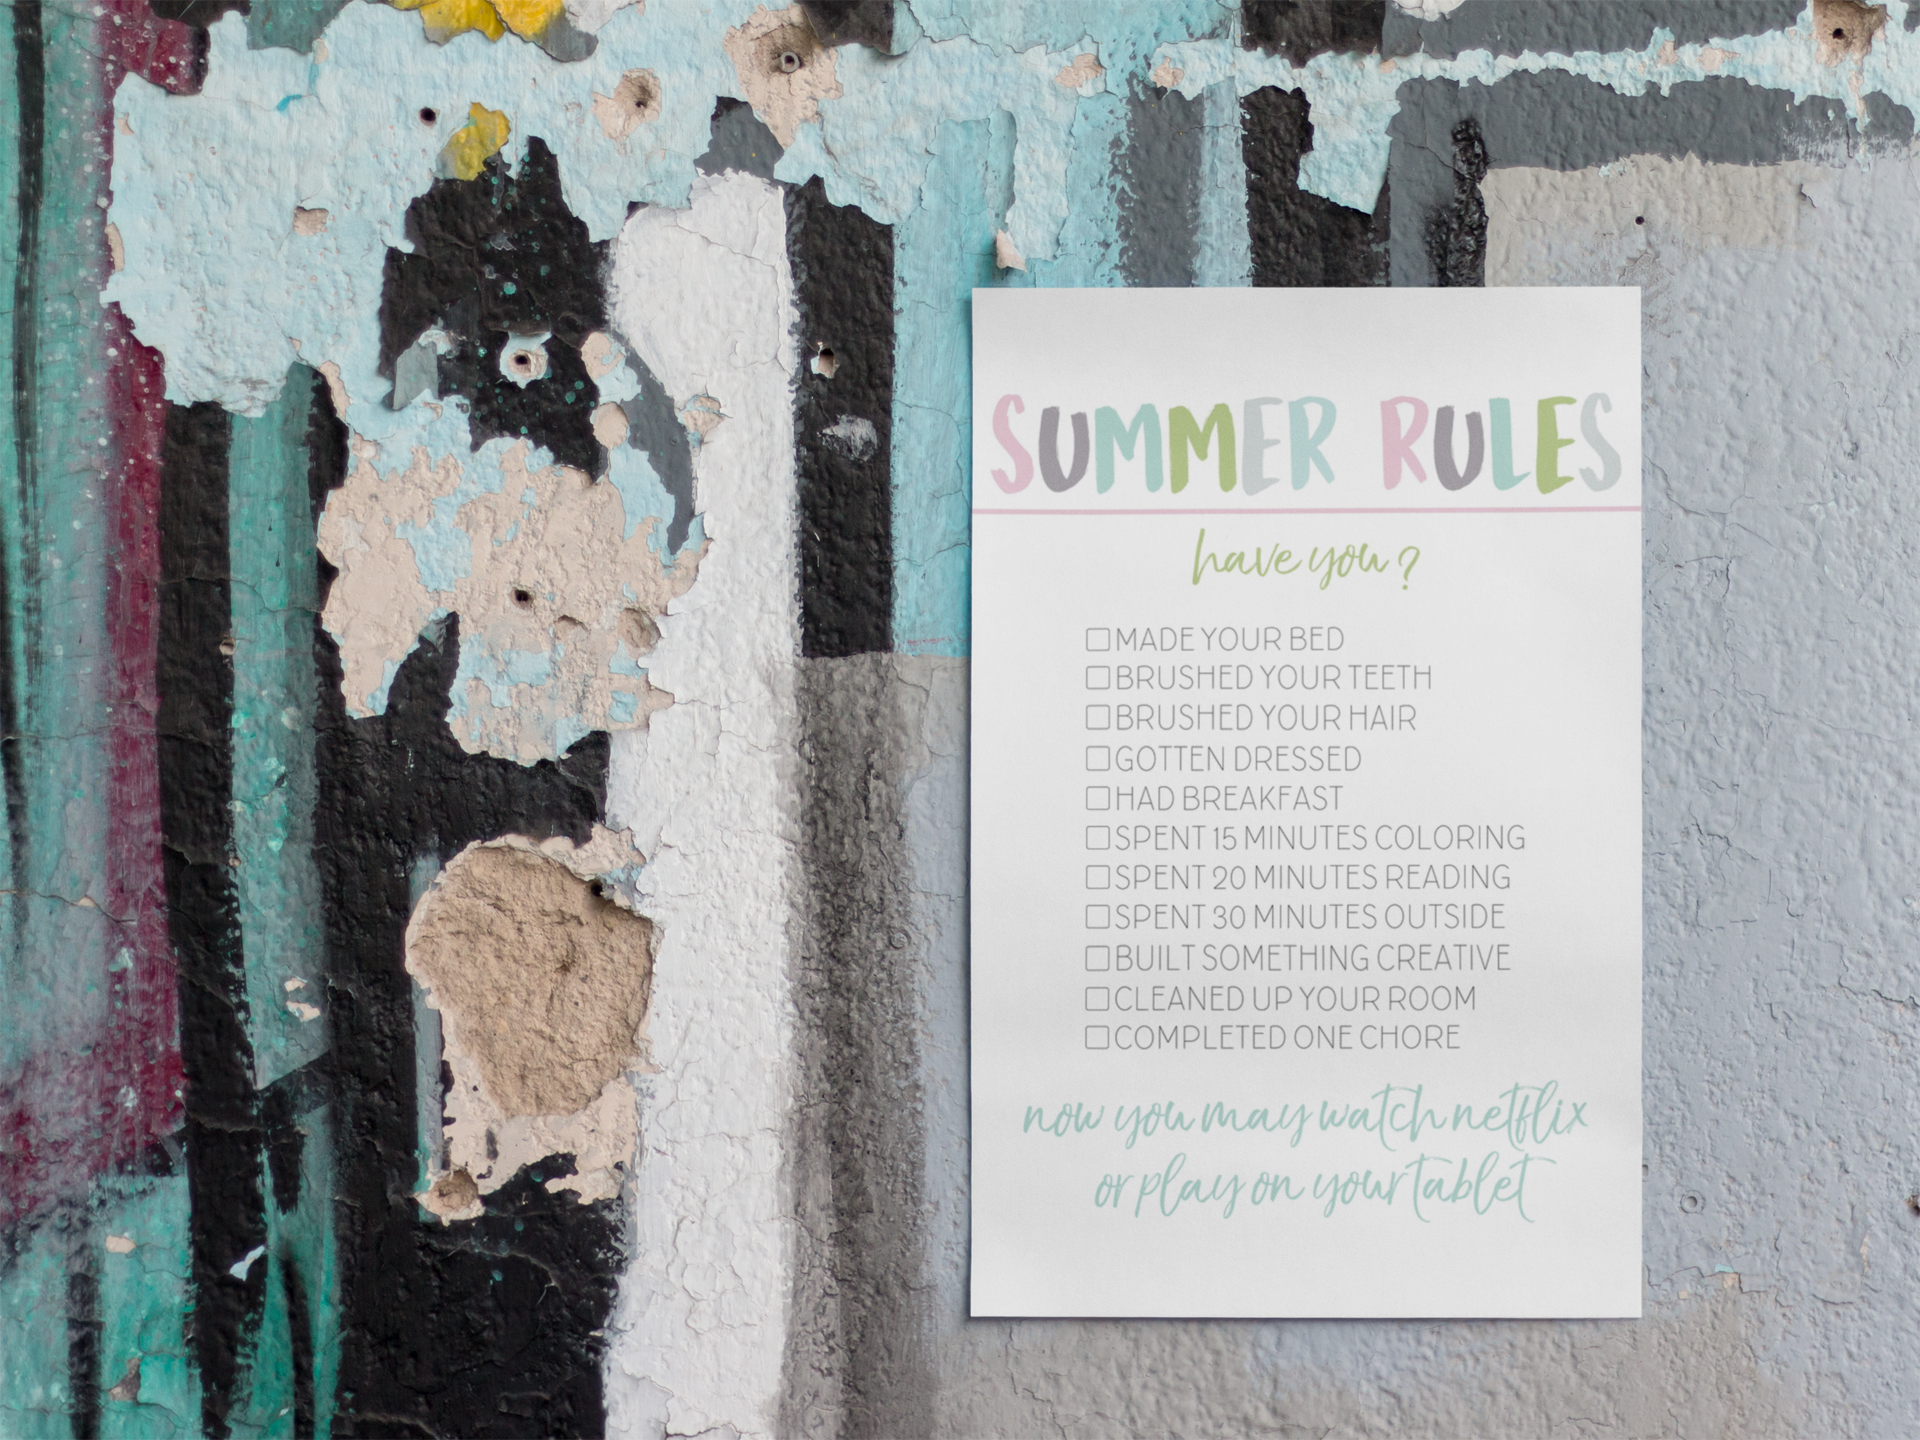 SUMMER RULES
have you?
MADE YOUR BED
BRUSHED YOUR TEETH
BRUSHED YOUR HAIR
GOTTEN DRESSED
HAD BREAKFAST
SPENT 15 MINUTES COLORING
SPENT 20 MINUTES READING
SPENT 30 MINUTES OUTSIDE
BUILT SOMETHING CREATIVE
CLEANED UP YOUR ROOM
COMPLETED ONE CHORE
now you may watch netflix
or play on your tablet